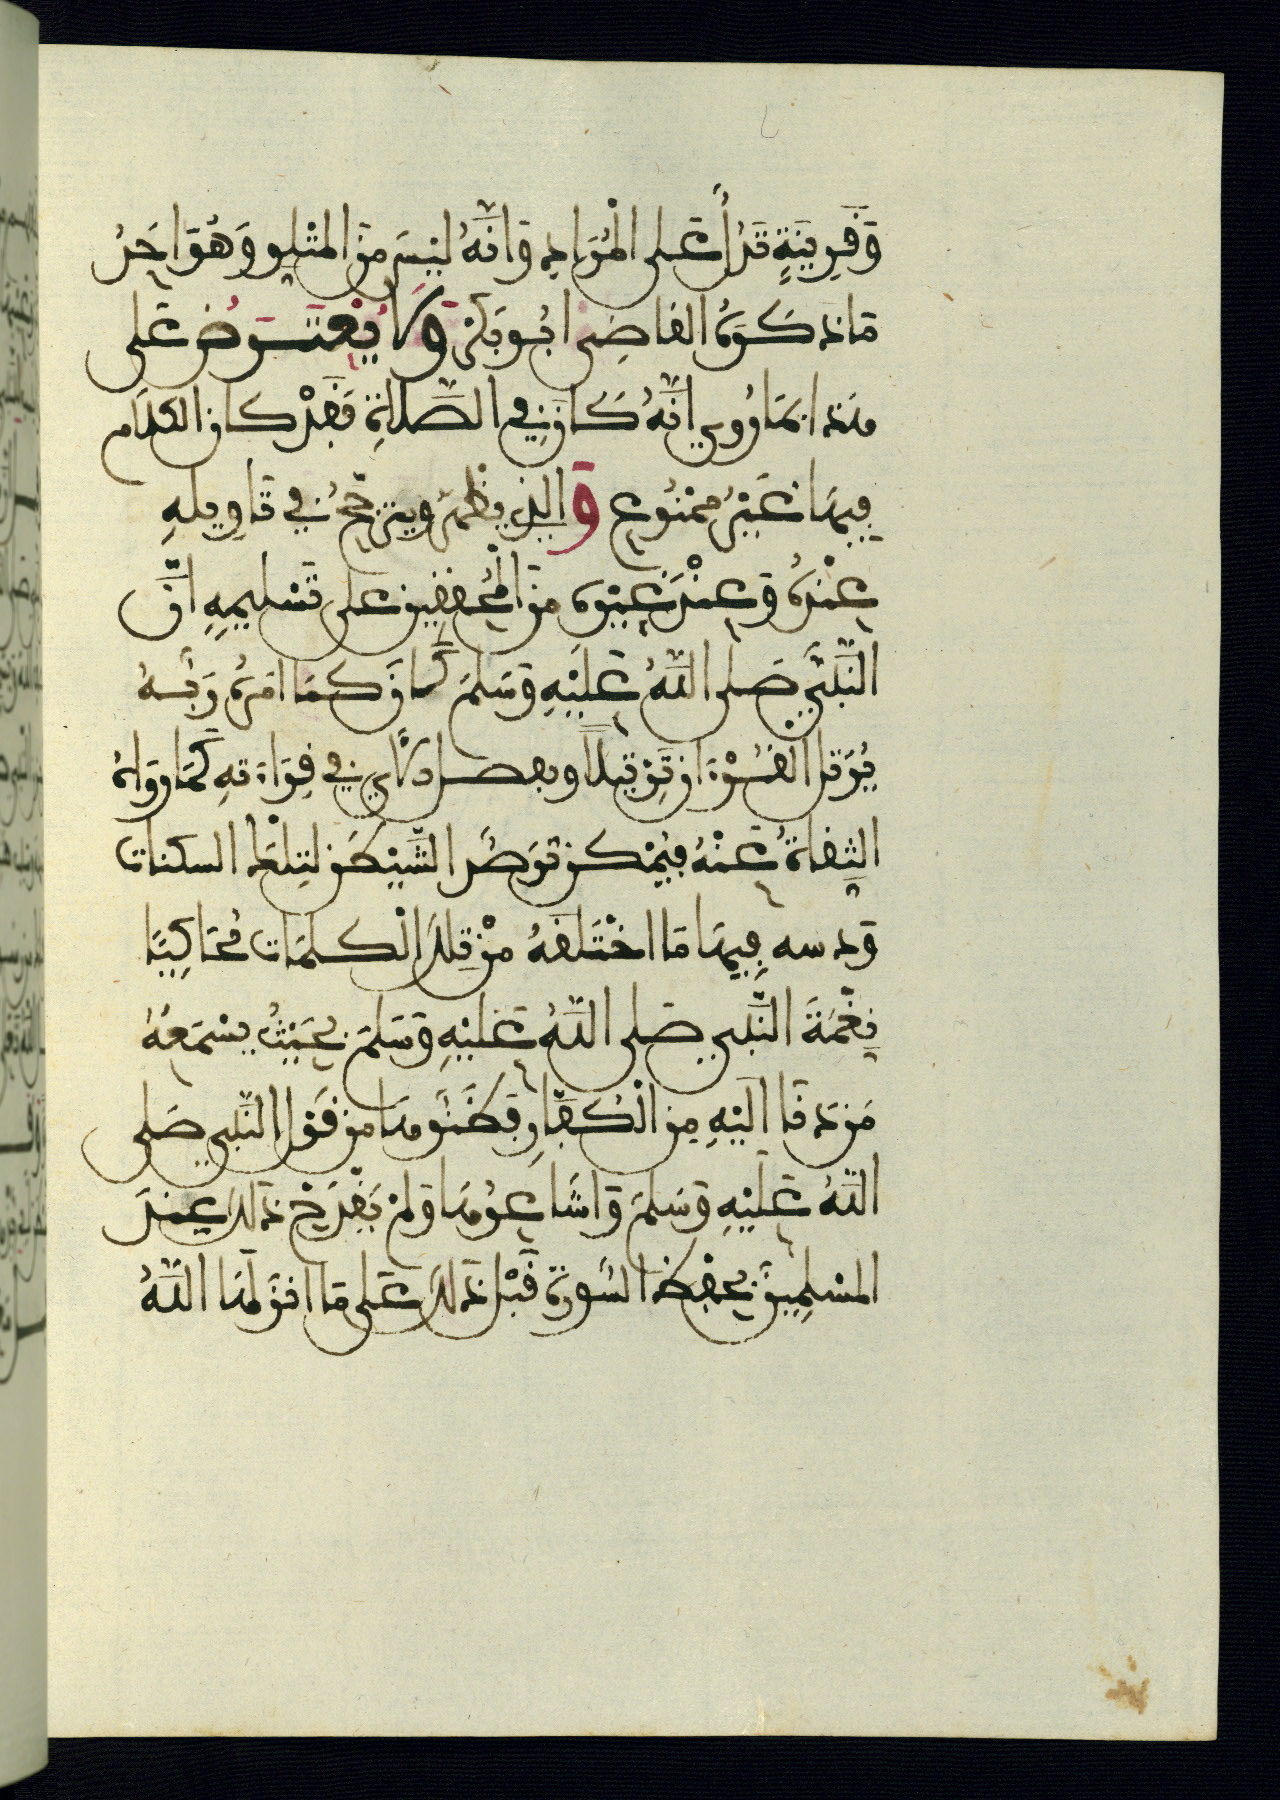 وَقَرِينَةٍ تَدُلُّ عَلَى الْمُرَادِ وَانَّهُ لَيْسَ مِنَ الْمَتْلو وَهُوَ احَدُ
مَا ذكَرَهُ القاضِى ابُو بَكْرٍ وَلَا يُعْتَرَضُ عَلَى
هَذَا بمَا رُوِي انَّهُ كَانَ فِي الصَّلاةِ فَقَدْ كان الكلَام
فِيهَا غَيْرُ مَمْنُوع وَالذِي يظْهَرُ ويترَجَّحُ في تَاوِيلهِ
عِنْدَهُ وَعِنْدَ غَيْرِهِ مِنَ الْمُحَققِينَ عَلَى تَسْلِيمِهِ انَّ
النَّبِيَّ صَلى اللَّهُ عَلَيْهِ وَسَلمَ كَانَ كمَا امَرَهُ رَبُّهُ
يُرَتل القُرْءَان تَرْتِيلًا ويفصل الاي في قِرَاءَتهِ كَمَا رواهُ
الثِقاةُ عَنْهُ فَيُمْكن تَرَصُّد الشَّيْطَن لتِلْكَ السكتات
وَدسه فِيهَا مَا اخْتَلَقَهُ مِنْ تِلكَ الْكلمَات مُحَاكِيًا
نِغْمَةَ النَّبي صَلى اللَّهُ عَلَيْهِ وَسَلمَ بحَيْثُ يسْمَعُهُ
مَن دَنَا الَيْهِ مِن الْكُفَّارِ فَظَنُّوهَا مِن قَوْل النَّبي صَلى
اللَّهُ عَلَيْهِ وَسَلمَ وَاشَاعُوهَا وَلمْ يَقْدَحْ ذَلكَ عِنْدَ
المسْلِمِينَ بحِفْظ السُّورَة قَبْل ذَلكَ عَلَى مَا انزَلهَا اللَّهُ